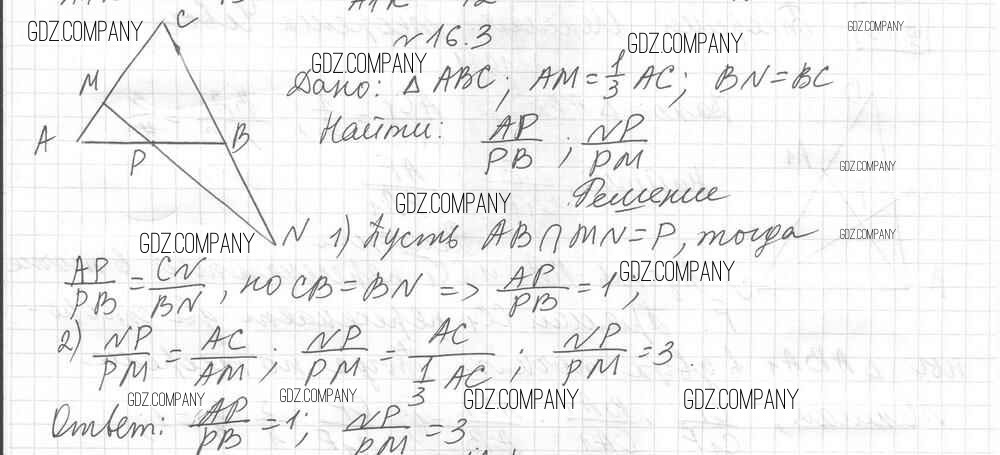 GDZ.COMPANY
GDZ.COMPANY
№ 16.3
GDZ.COMPANY
GDZ.COMPANY
C
M
A
P
B
N
Дано: △ ABC; AM = 1/3 AC; BN = BC
Найти: AP/PB; NP/PM
GDZ.COMPANY
Решение
GDZ.COMPANY
GDZ.COMPANY
GDZ.COMPANY
1) Пусть AB ∩ MN = P, тогда
AP/PB = CN/BN, но CB = BN => AP/PB = 1;
GDZ.COMPANY
2) NP/PM = AC/AM; NP/PM = AC/(1/3 AC); NP/PM = 3.
GDZ.COMPANY
GDZ.COMPANY
GDZ.COMPANY
GDZ.COMPANY
Ответ: AP/PB = 1; NP/PM = 3